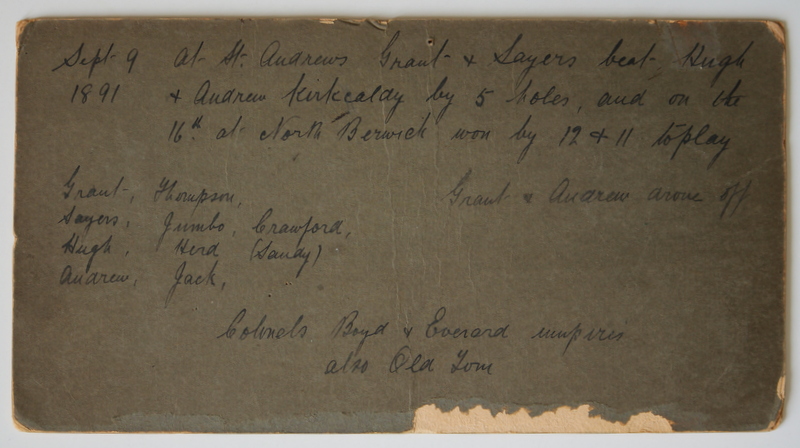 Sept 9 at St. Andrews Grant & Sayers beat Hugh
1891 & Andrew Kirkcaldy by 5 holes, and on the
16th at North Berwick won by 12 & 11 to play
Grant, Thompson,
Grant & Andrew drove off
Sayers, Jumbo, Crawford,
Hugh, Herd (Sandy)
Andrew, Jack,
Colonels Boyd & Everard umpires
also Old Tom